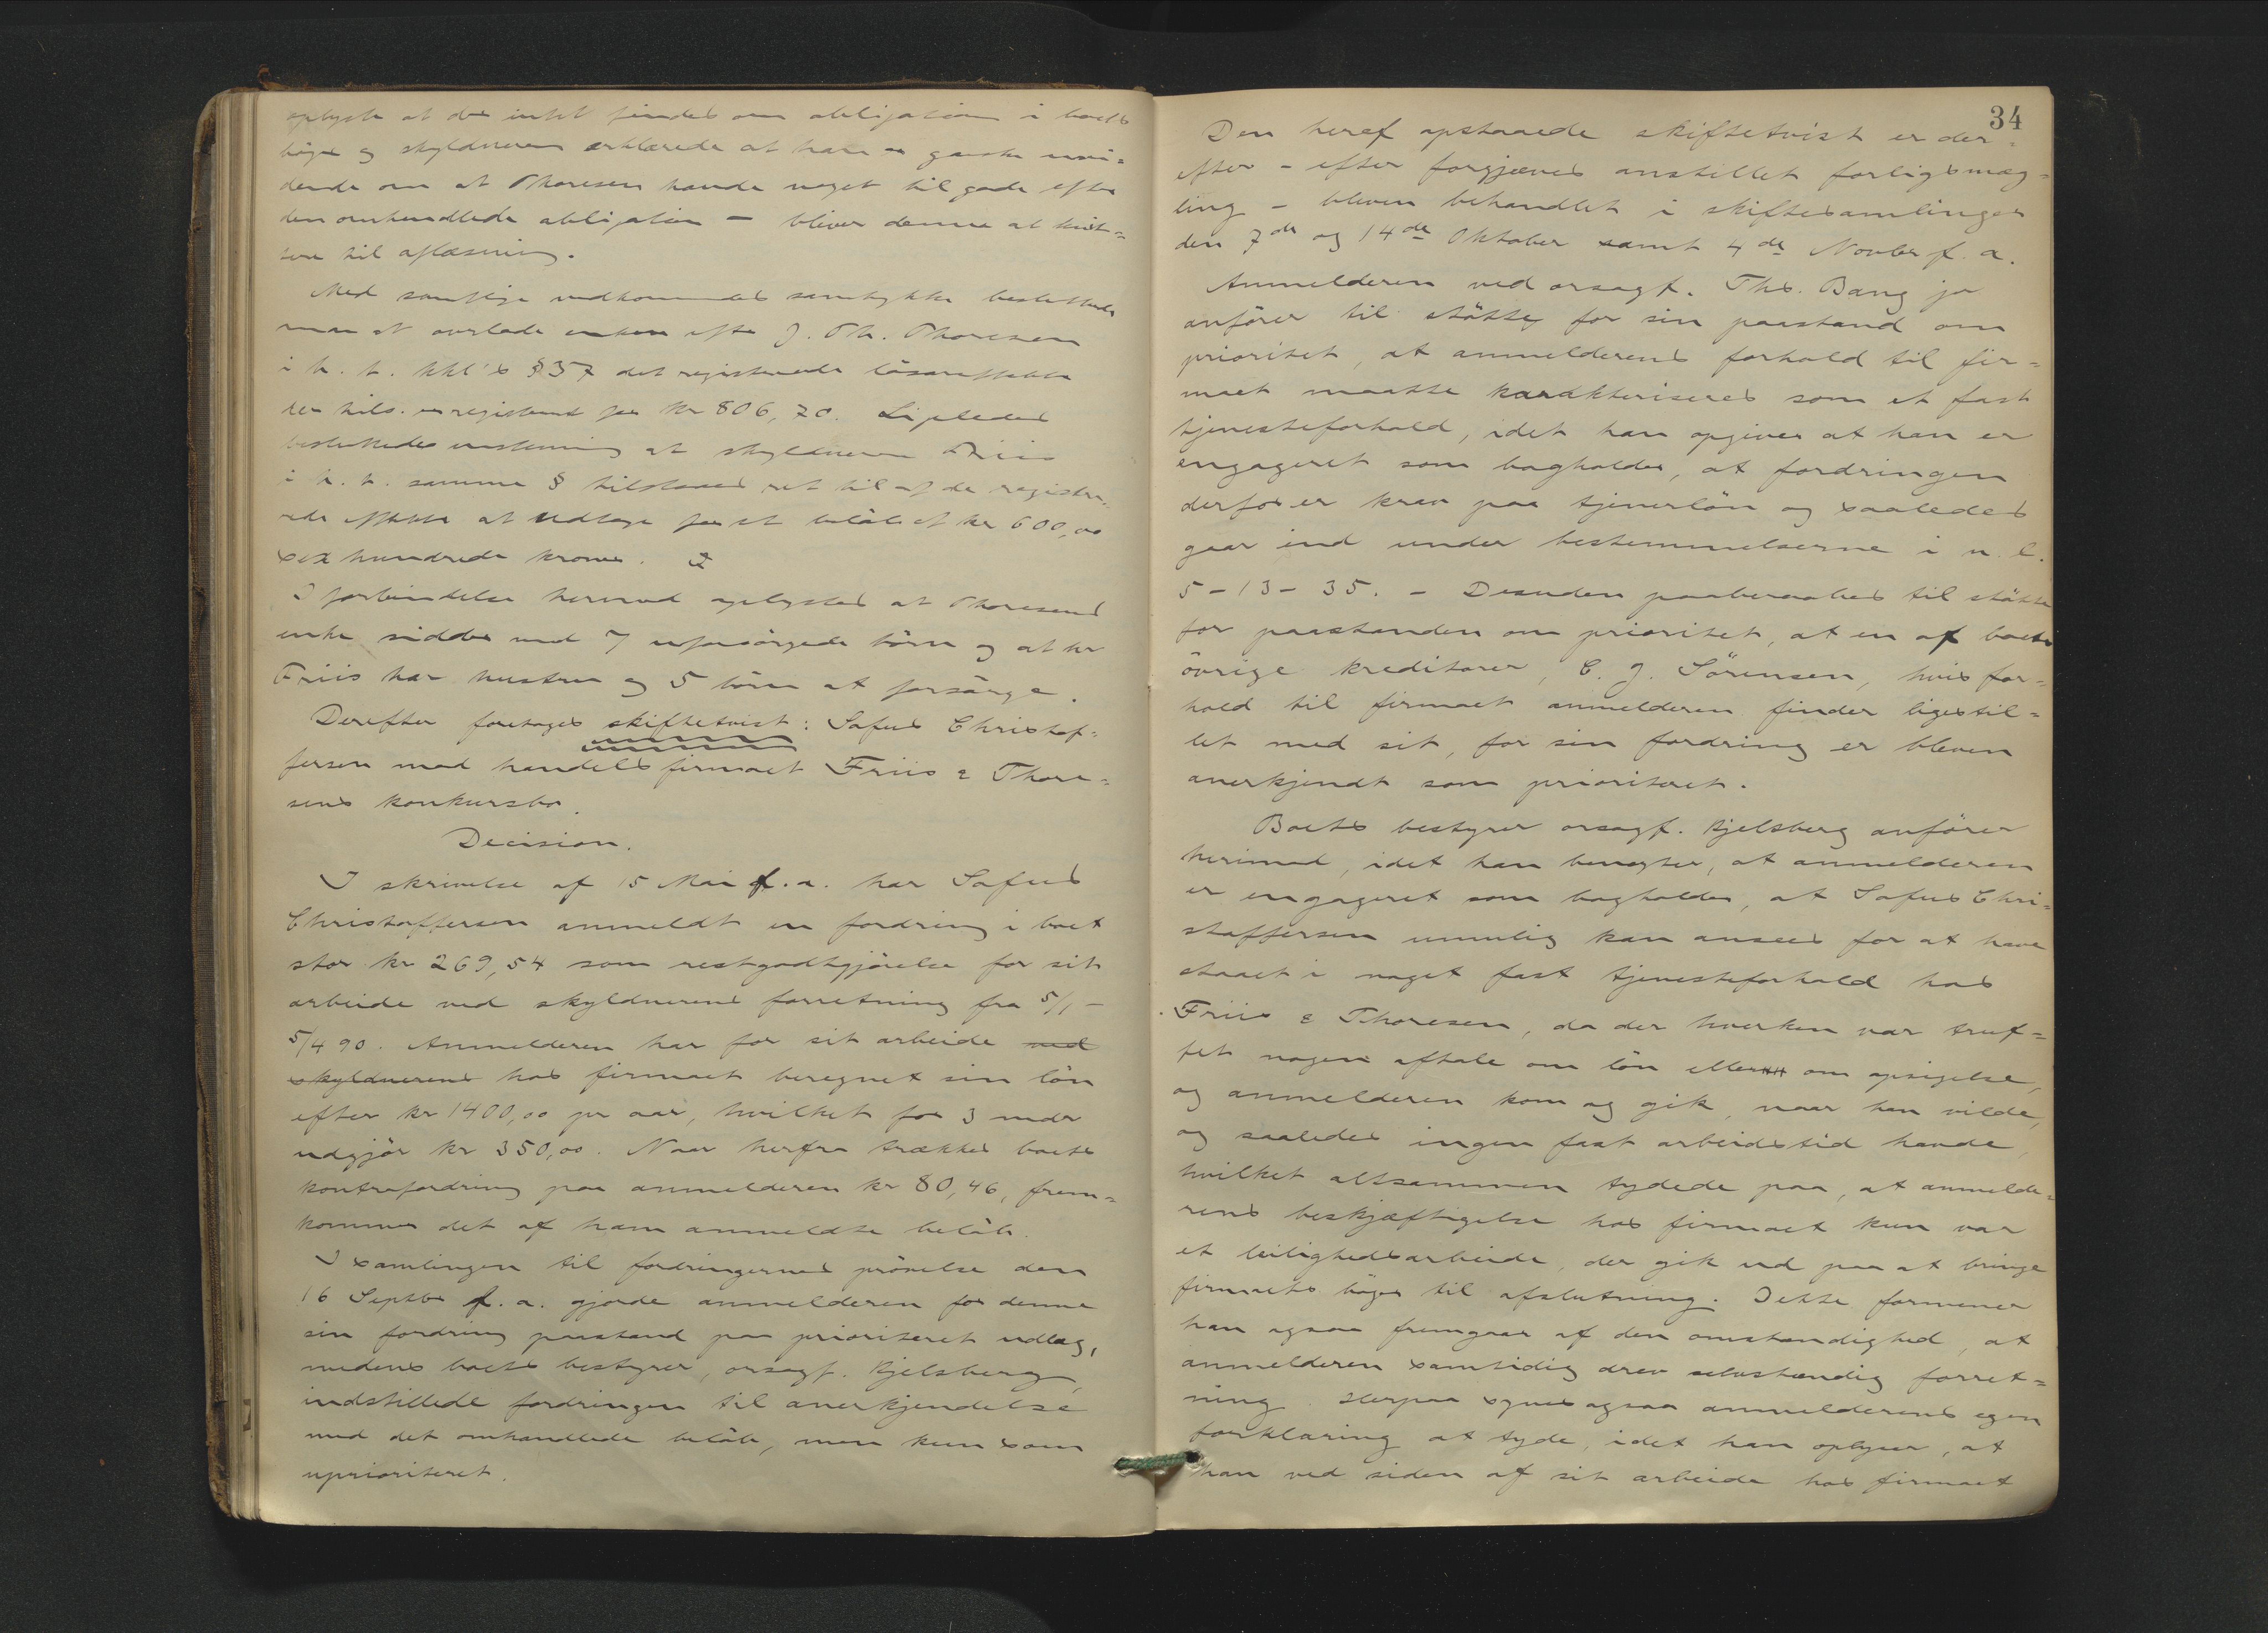 oplyste at der intet findes om obligationen i boets
bøger og skyldneren erklærede at han er ganske uvi=
dende om at Thoresen havde noget tilgode efter
den omhandlede obligation - bliver denne at kvit=
tere til aflæsning.
Med samtlige vedkommendes samtykke besluttedes
man at overlade enken efter J. Th. Thoresen
i h. t. kkl's § 37 det registrerede løsøreffekter
der tils. er registreret for kr 806,70. Ligeledes
besluttedes enstemmig at skyldneren Friis
i h. t. samme § tilstaaes ret til af de registre=
rede effekter at udtage for et beløb af kr 600,00
sex hundrede kroner.
I forbindelse hermed oplystes at Thoresens
enke sidder med 7 uforsørgede børn og at hr
Friis har hustru og 5 børn at forsørge.
Derefter foretoges skiftetvist: Sofus Christof=
fersen mod handelsfirmaet Friis & Thore=
sens konkursbo.
Decision.
I skrivelse af 15 Mai f. a. har Sofus
Christoffersen anmeldt en fordring i boet
stor kr 269,54 som restgodtgjørelse for sit
arbeide ved skyldnerens forretning fra 5/1 -
5/4 90. Anmelderen har for sit arbeide ved
skyldnerens hos firmaet beregnet sin løn
efter kr 1400,00 pr aar, hvilket for 3 mdr
udgjør kr 350,00. Naar herfra trækkes boets
kontrafordring paa anmelderen kr 80,46, frem=
kommer det af ham anmeldte beløb.
I samlingen til fordringernes prøvelse den
16 Septbr f. a. gjorde anmelderen for denne
sin fordring paastand paa prioriteret udlæg,
medens boets bestyrer, orsagf. Kjelsberg,
indstillede fordringen til anerkjendelse
med det omhandlede beløb, men kun som
uprioriteret.
34
Den heraf opstaaede skiftetvist er der=
efter - efter forgjæves anstillet forligsmæg=
ling - bleven behandlet i skiftesamlinger
den 7de og 14de Oktober samt 4de Novbr f. a.
Anmelderen ved orsagf. Ths. Bang jr
anfører til støtte for sin paastand om
prioritet, at anmelderens forhold til fir=
maet maatte karakteriseres som et fast
tjenesteforhold, idet han opgiver at han er
engageret som bogholder, at fordringen
derfor er krav paa tjenerløn og saaledes
gaar ind under bestemmelserne i n. l.
5-13-35. - Desuden paaberaabes til støtte
for paastanden om prioritet, at en af boets
øvrige kreditorer, C. J. Sørensen, hvis for=
hold til firmaet anmelderen finder ligestil=
let med sit, for sin fordring er bleven
anerkjendt som prioriteret.
Boets bestyrer orsagf. Kjelsberg anfører
herimod, idet han benegter, at anmelderen
er engageret som bogholder, at Sofus Chri=
stoffersen umulig kan ansees for at have
staaet i noget fast tjenesteforhold hos
Friis & Thoresen, da der hverken var truf=
fet nogen aftale om løn eller om opsigelse,
og anmelderen kom og gik, naar han vilde,
og saaledes ingen fast arbeidstid havde,
hvilket altsammen tydede paa, at anmelde=
rens beskjæftigelse hos firmaet kun var
et leilighedsarbeide, der gik ud paa at bringe
firmaets bøger til afslutning. Dette formener
han ogsaa fremgaar af den omstændighed, at
anmelderen samtidig drev selvstændig forret=
ning. Herpaa synes ogsaa anmelderens egen
forklaring at tyde, idet han oplyser, at
han ved siden af sit arbeide hos firmaet